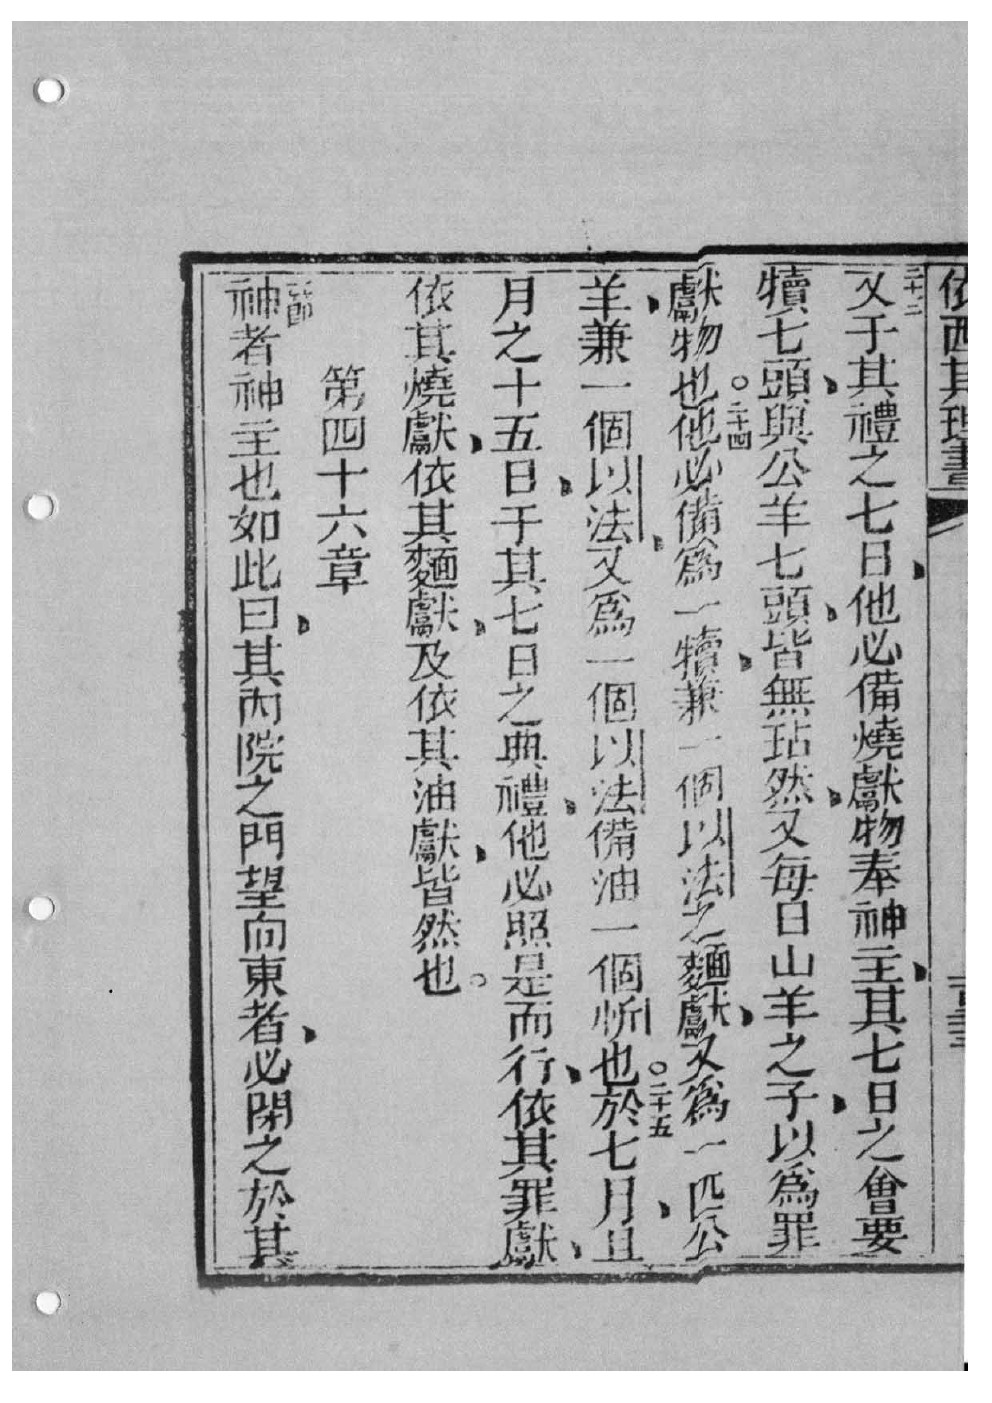 依西其理書
二十三
又于其禮之七日他必備燒獻物奉神主其七日之會要
犢七頭與公羊七頭皆無玷然又每日山羊之子以為罪
獻物也○二十四他必備為一犢兼一個以法之麵獻又為一匹公
羊兼一個以法又為一個以法備油一個忻也○二十五於七月且
月之十五日于其七日之典禮他必照是而行依其罪獻
依其燒獻依其麵獻及依其油獻皆然也。
第四十六章
神者神主也如此曰其內院之門望向東者必閉之於其